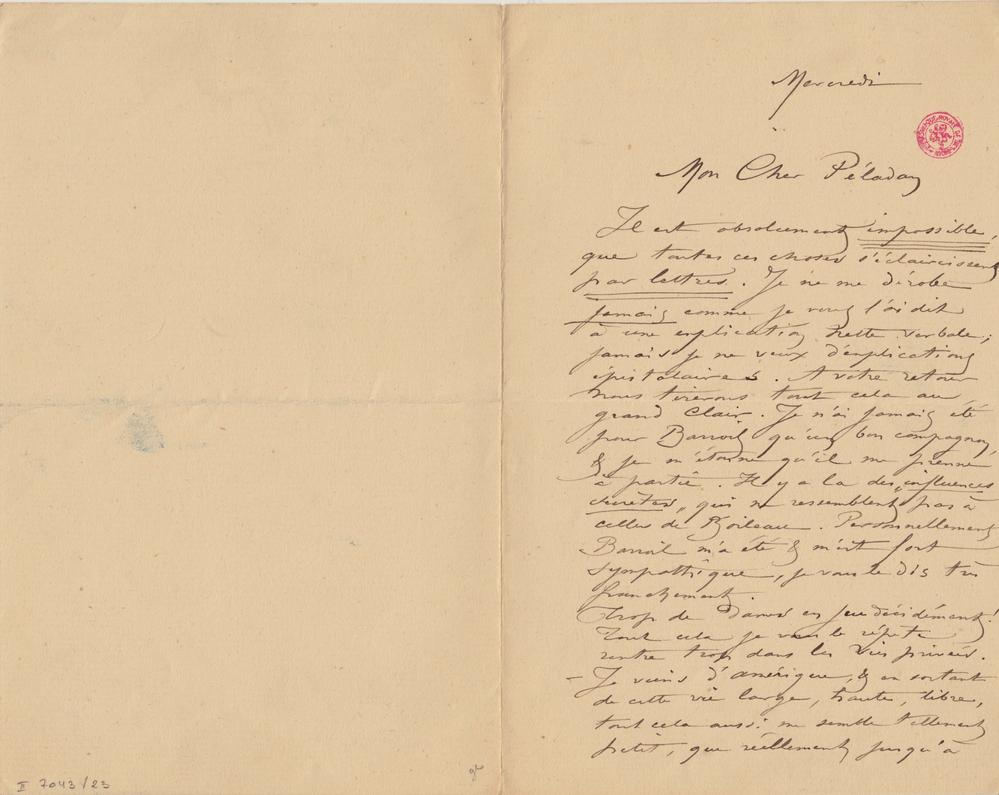 Mercredi
Mon Cher Péladan
Il est absolument impossible,
que toutes ces choses s'éclaircissent
par lettres. Je ne me dérobe
jamais comme je vous l'ai dit
à une explication nette verbale;
jamais je ne veux d'explications
épistolaires. A votre retour
nous tirerons tout cela au
grand Clair. Je n'ai jamais été
pour Barroil qu'un bon compagnon,
& je m'étonne qu'il me prenne
à partie. Il y a là des "influences
secrètes", qui ne ressemblent pas à
celles de Boileau. Personnellement
Barroil m'a été & m'est fort
sympathique, je vous le dis très
franchement.
Trop de Dames en jeu décidément!
Tout cela je vous le répète
rentre trop dans les Vies privées.
- Je viens d'amérique, & en sortant
de cette vie large, haute, libre,
tout cela aussi me semble tellement
petit, que réellement jusqu'à
II 7043/23